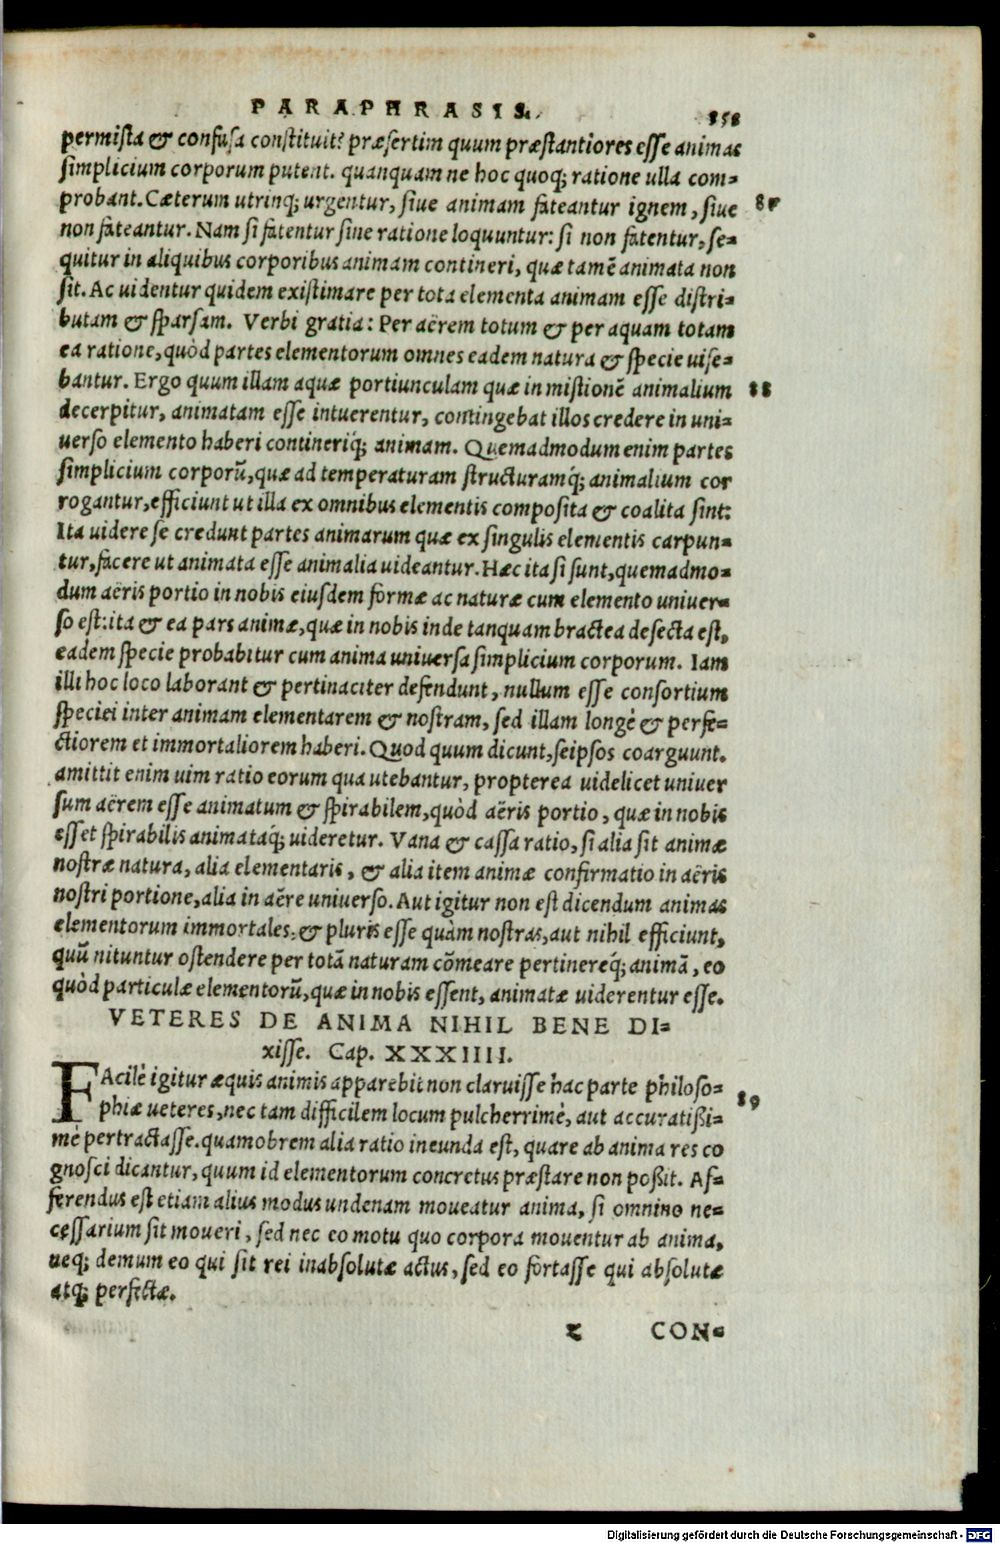 PARAPHRASIS. 858
permista & confusa constituit? præsertim quum præstantiores esse animas
simplicium corporum putent. quanquam ne hoc quoq; ratione ulla com-
probant. Cæterum utrinq; urgentur, siue animam fateantur ignem, siue 87
non fateantur. Nam si fatentur sine ratione loquuntur: si non fatentur, se-
quitur in aliquibus corporibus animam contineri, quæ tamẽ animata non
sit. Ac uidentur quidem existimare per tota elementa animam esse distri-
butam & sparsam. Verbi gratia: Per aërem totum & per aquam totam
ea ratione, quòd partes elementorum omnes eadem natura & specie uise-
bantur. Ergo quum illam aquæ portiunculam quæ in mistionẽ animalium 88
decerpitur, animatam esse intuerentur, contingebat illos credere in uni-
uerso elemento haberi contineriq́; animam. Quemadmodum enim partes
simplicium corporũ, quæ ad temperaturam structuramq́; animalium cor
rogantur, efficiunt ut illa ex omnibus elementis composita & coalita sint:
Ita uidere se credunt partes animarum quæ ex singulis elementis carpun-
tur, facere ut animata esse animalia uideantur. Hæc ita si sunt, quemadmo-
dum aëris portio in nobis eiusdem formæ ac naturæ cum elemento uniuer-
so est: ita & ea pars animæ, quæ in nobis inde tanquam bractea desecta est,
eadem specie probabitur cum anima uniuersa simplicium corporum. Iam
illi hoc loco laborant & pertinaciter defendunt, nullum esse consortium
speciei inter animam elementarem & nostram, sed illam longè & perfe-
ctiorem et immortaliorem haberi. Quod quum dicunt, seipsos coarguunt.
amittit enim uim ratio eorum qua utebantur, propterea uidelicet uniuer
sum aërem esse animatum & spirabilem, quòd aëris portio, quæ in nobis
esset spirabilis animataq́; uideretur. Vana & cassa ratio, si alia sit animæ
nostræ natura, alia elementaris, & alia item animæ confirmatio in aëris
nostri portione, alia in aëre uniuerso. Aut igitur non est dicendum animas
elementorum immortales, & pluris esse quàm nostras, aut nihil efficiunt,
quũ nituntur ostendere per totã naturam cõmeare pertinereq́; animã, eo
quòd particulæ elementorũ, quæ in nobis essent, animatæ uiderentur esse.
VETERES DE ANIMA NIHIL BENE DI-
xisse. Cap. XXXIIII.
FAcilè igitur æquis animis apparebit non claruisse hac parte philoso- 89
phiæ ueteres, nec tam difficilem locum pulcherrimè, aut accuratißi-
mè pertractasse. quamobrem alia ratio ineunda est, quare ab anima res co
gnosci dicantur, quum id elementorum concretus præstare non poßit. Af-
ferendus est etiam alius modus undenam moueatur anima, si omnino ne-
cessarium sit moueri, sed nec eo motu quo corpora mouentur ab anima,
neq; demum eo qui sit rei inabsolutæ actus, sed eo fortasse qui absolutæ
atq; perfectæ.
CON-
Digitalisierung gefördert durch die Deutsche Forschungsgemeinschaft - DFG